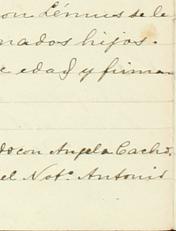 on Lémus de le
nados hijos.
e edad y firma
do con Angela Cacho.
el Not.º Antonio